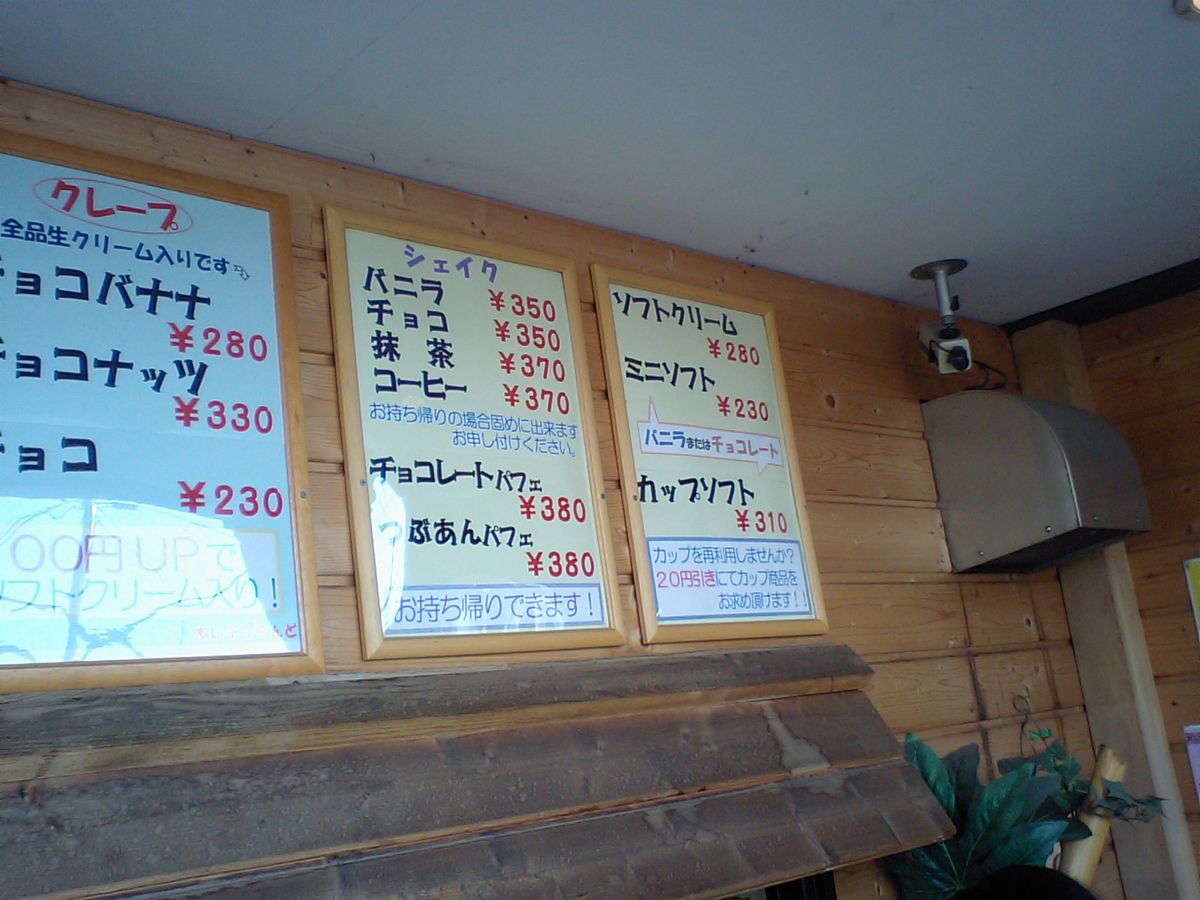 クレープ
全品生クリーム入りです
チョコバナナ
¥280
チョコナッツ
¥330
チョコ
¥230
00円UPで
ソフトクリーム入り!
シェイク
バニラ ¥350
チョコ ¥350
抹茶 ¥370
コーヒー ¥370
お持ち帰りの場合固めに出来ます
お申し付けください。
チョコレートパフェ
¥380
つぶあんパフェ
¥380
お持ち帰りできます!
ソフトクリーム
¥280
ミニソフト
¥230
バニラまたはチョコレート
カップソフト
¥310
カップを再利用しませんか?
20円引きにてカップ商品を
お求め頂けます!!